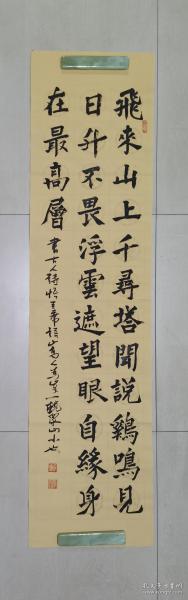 飛來山上千尋塔聞說鷄鳴見
日升不畏浮雲遮望眼自緣身
在最高層
書古人詩